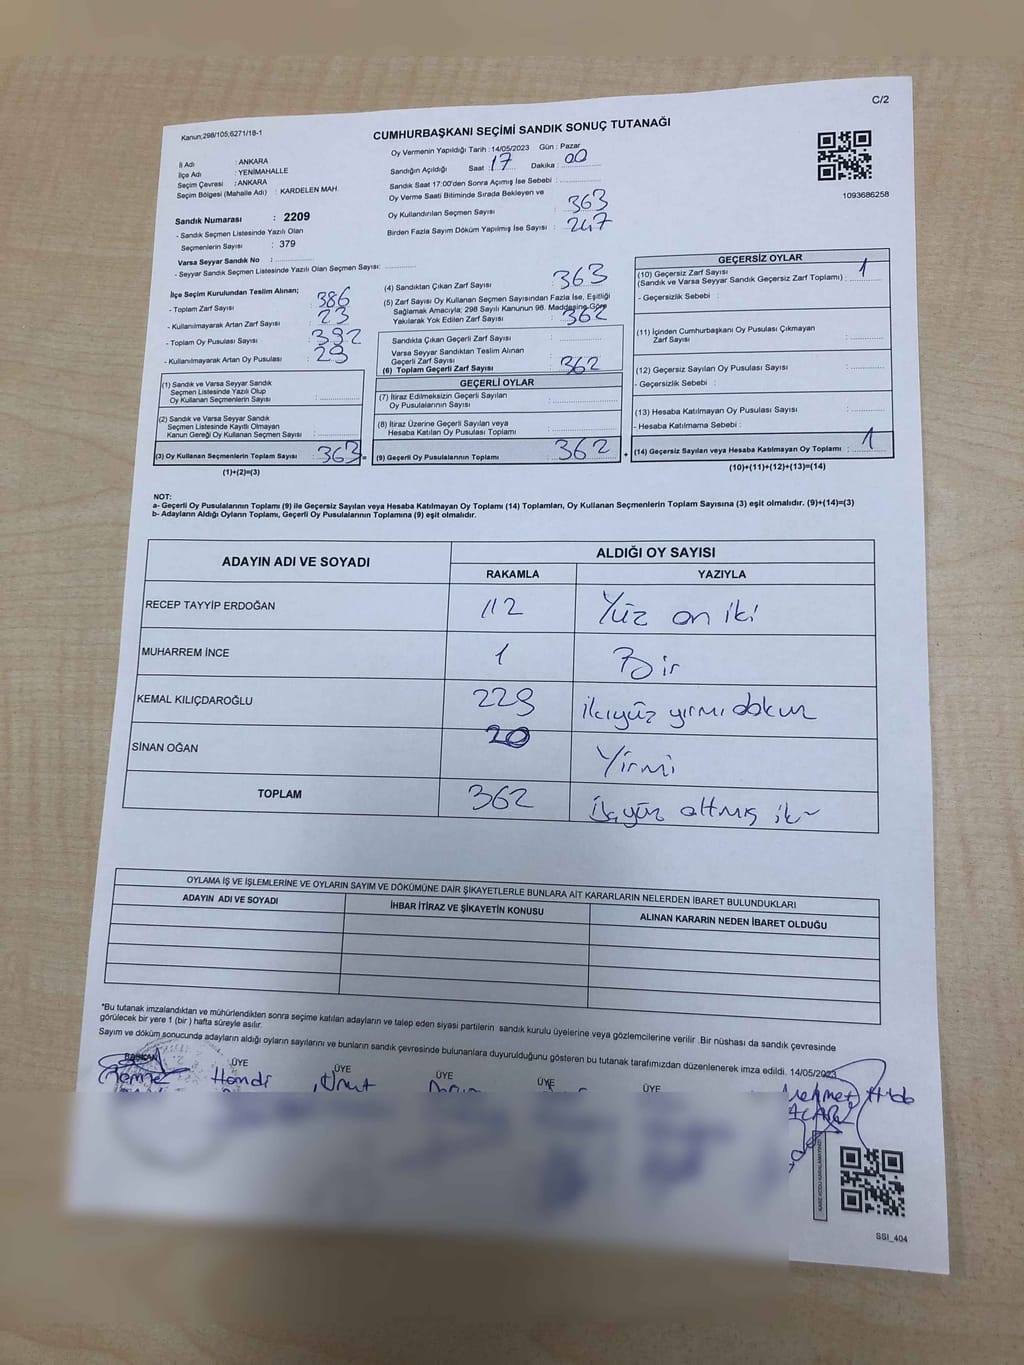 C/2
Kanun;298/105;6271/18-1
CUMHURBAŞKANI SEÇİMİ SANDIK SONUÇ TUTANAĞI
Oy Vermenin Yapıldığı Tarih : 14/05/2023 Gün : Pazar
Sandığın Açıldığı Saat : 17 Dakika : 00
Sandık Saat 17:00'den Sonra Açımış İse Sebebi :
Oy Verme Saati Bitiminde Sırada Bekleyen ve
Oy Kullandırılan Seçmen Sayısı : 363
Birden Fazla Sayım Döküm Yapılmış İse Sayısı : 247
1093686258
İl Adı : ANKARA
İlçe Adı : YENİMAHALLE
Seçim Çevresi : ANKARA
Seçim Bölgesi (Mahalle Adı) : KARDELEN MAH.
Sandık Numarası : 2209
- Sandık Seçmen Listesinde Yazılı Olan
Seçmenlerin Sayısı : 379
Varsa Seyyar Sandık No :
- Seyyar Sandık Seçmen Listesinde Yazılı Olan Seçmen Sayısı:
İlçe Seçim Kurulundan Teslim Alınan;
- Toplam Zarf Sayısı : 386
- Kullanılmayarak Artan Zarf Sayısı : 23
- Toplam Oy Pusulası Sayısı : 392
- Kullanılmayarak Artan Oy Pusulası : 29
(1) Sandık ve Varsa Seyyar Sandık
Seçmen Listesinde Yazılı Olup
Oy Kullanan Seçmenlerin Sayısı :
(2) Sandık ve Varsa Seyyar Sandık
Seçmen Listesinde Kayıtlı Olmayan
Kanun Gereği Oy Kullanan Seçmen Sayısı :
(3) Oy Kullanan Seçmenlerin Toplam Sayısı : 363 =
(1)+(2)=(3)
(4) Sandıktan Çıkan Zarf Sayısı : 363
(5) Zarf Sayısı Oy Kullanan Seçmen Sayısından Fazla İse, Eşitliği
Sağlamak Amacıyla; 298 Sayılı Kanunun 98. Maddesine Göre
Yakılarak Yok Edilen Zarf Sayısı : 362
Sandıkta Çıkan Geçerli Zarf Sayısı :
Varsa Seyyar Sandıktan Teslim Alınan
Geçerli Zarf Sayısı :
(6) Toplam Geçerli Zarf Sayısı : 362
GEÇERLİ OYLAR
(7) İtiraz Edilmeksizin Geçerli Sayılan
Oy Pusulalarının Sayısı :
(8) İtiraz Üzerine Geçerli Sayılan veya
Hesaba Katılan Oy Pusulası Toplamı :
(9) Geçerli Oy Pusulalarının Toplamı : 362 +
GEÇERSİZ OYLAR
(10) Geçersiz Zarf Sayısı
(Sandık ve Varsa Seyyar Sandık Geçersiz Zarf Toplamı) : 1
- Geçersizlik Sebebi :
(11) İçinden Cumhurbaşkanı Oy Pusulası Çıkmayan
Zarf Sayısı :
(12) Geçersiz Sayılan Oy Pusulası Sayısı :
- Geçersizlik Sebebi :
(13) Hesaba Katılmayan Oy Pusulası Sayısı :
- Hesaba Katılmama Sebebi :
(14) Geçersiz Sayılan veya Hesaba Katılmayan Oy Toplamı : 1
(10)+(11)+(12)+(13)=(14)
NOT:
a- Geçerli Oy Pusulalarının Toplamı (9) ile Geçersiz Sayılan veya Hesaba Katılmayan Oy Toplamı (14) Toplamları, Oy Kullanan Seçmenlerin Toplam Sayısına (3) eşit olmalıdır. (9)+(14)=(3)
b- Adayların Aldığı Oyların Toplamı, Geçerli Oy Pusulalarının Toplamına (9) eşit olmalıdır.
ADAYIN ADI VE SOYADI
ALDIĞI OY SAYISI
RAKAMLA YAZIYLA
RECEP TAYYİP ERDOĞAN 112 Yüz on iki
MUHARREM İNCE 1 Bir
KEMAL KILIÇDAROĞLU 229 ikiyüz yirmi dokuz
SİNAN OĞAN 20 Yirmi
TOPLAM 362 üçyüz altmış iki
OYLAMA İŞ VE İŞLEMLERİNE VE OYLARIN SAYIM VE DÖKÜMÜNE DAİR ŞİKAYETLERLE BUNLARA AİT KARARLARIN NELERDEN İBARET BULUNDUKLARI
ADAYIN ADI VE SOYADI İHBAR İTİRAZ VE ŞİKAYETİN KONUSU ALINAN KARARIN NEDEN İBARET OLDUĞU
*Bu tutanak imzalandıktan ve mühürlendikten sonra seçime katılan adayların ve talep eden siyasi partilerin sandık kurulu üyelerine veya gözlemcilerine verilir .Bir nüshası da sandık çevresinde
görülecek bir yere 1 (bir ) hafta süreyle asılır.
Sayım ve döküm sonucunda adayların aldığı oyların sayılarını ve bunların sandık çevresinde bulunanlara duyurulduğunu gösteren bu tutanak tarafımızdan düzenlenerek imza edildi. 14/05/2023
BAŞKAN ÜYE ÜYE ÜYE ÜYE ÜYE
Hamdi Umut Mehmet
SSI_404